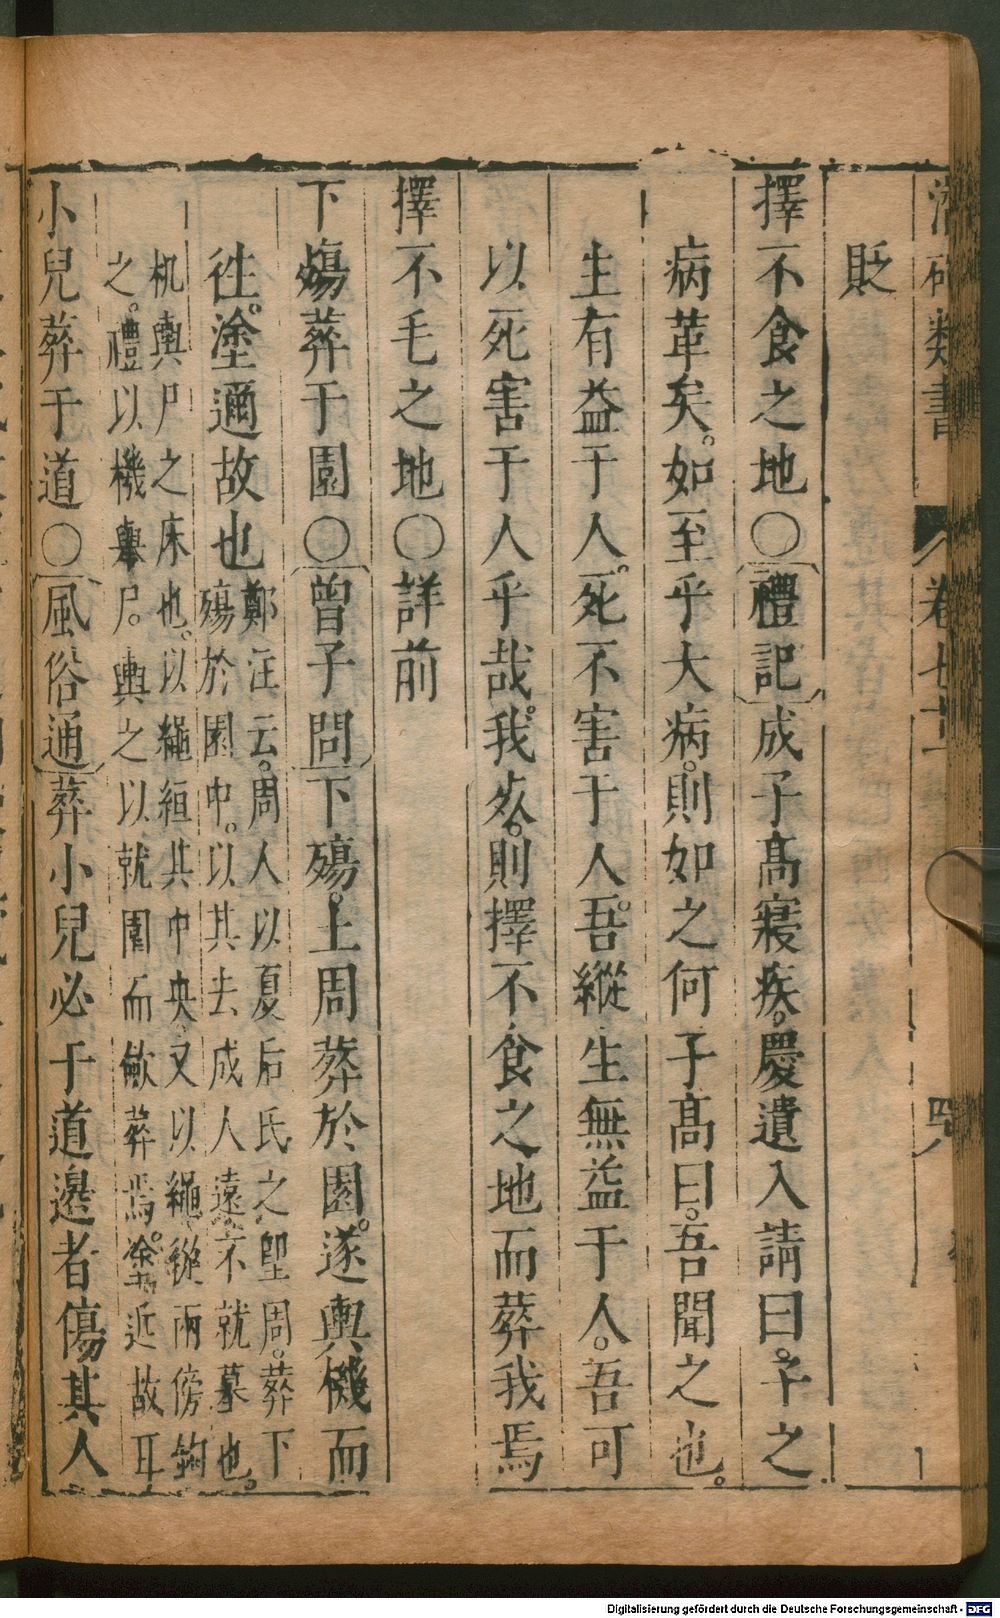 潛確類書 卷七十一 四
貶
擇不食之地〇禮記成子高寢疾。慶遺入請曰。子之
病革矣。如至乎大病。則如之何子高曰。吾聞之也。
生有益于人。死不害于人。吾縱生無益于人。吾可
以死害于人乎哉。我死。則擇不食之地而葬我焉
擇不毛之地〇詳前
下殤葬于園〇曾子問下殤。土周葬於園。遂輿機而
往。塗邇故也鄭注云。周人以夏后氏之堲周。葬下
殤於園中。以其去成人遠不就墓也。
机輿尸之床也。以繩絙其中央又以繩縱兩傍鉤
之。禮以機舉尸。輿之以就園而斂葬焉。塗近故耳
小兒葬于道〇風俗通葬小兒必于道邊者傷其人
Digitalisierung gefördert durch die Deutsche Forschungsgemeinschaft - DFG